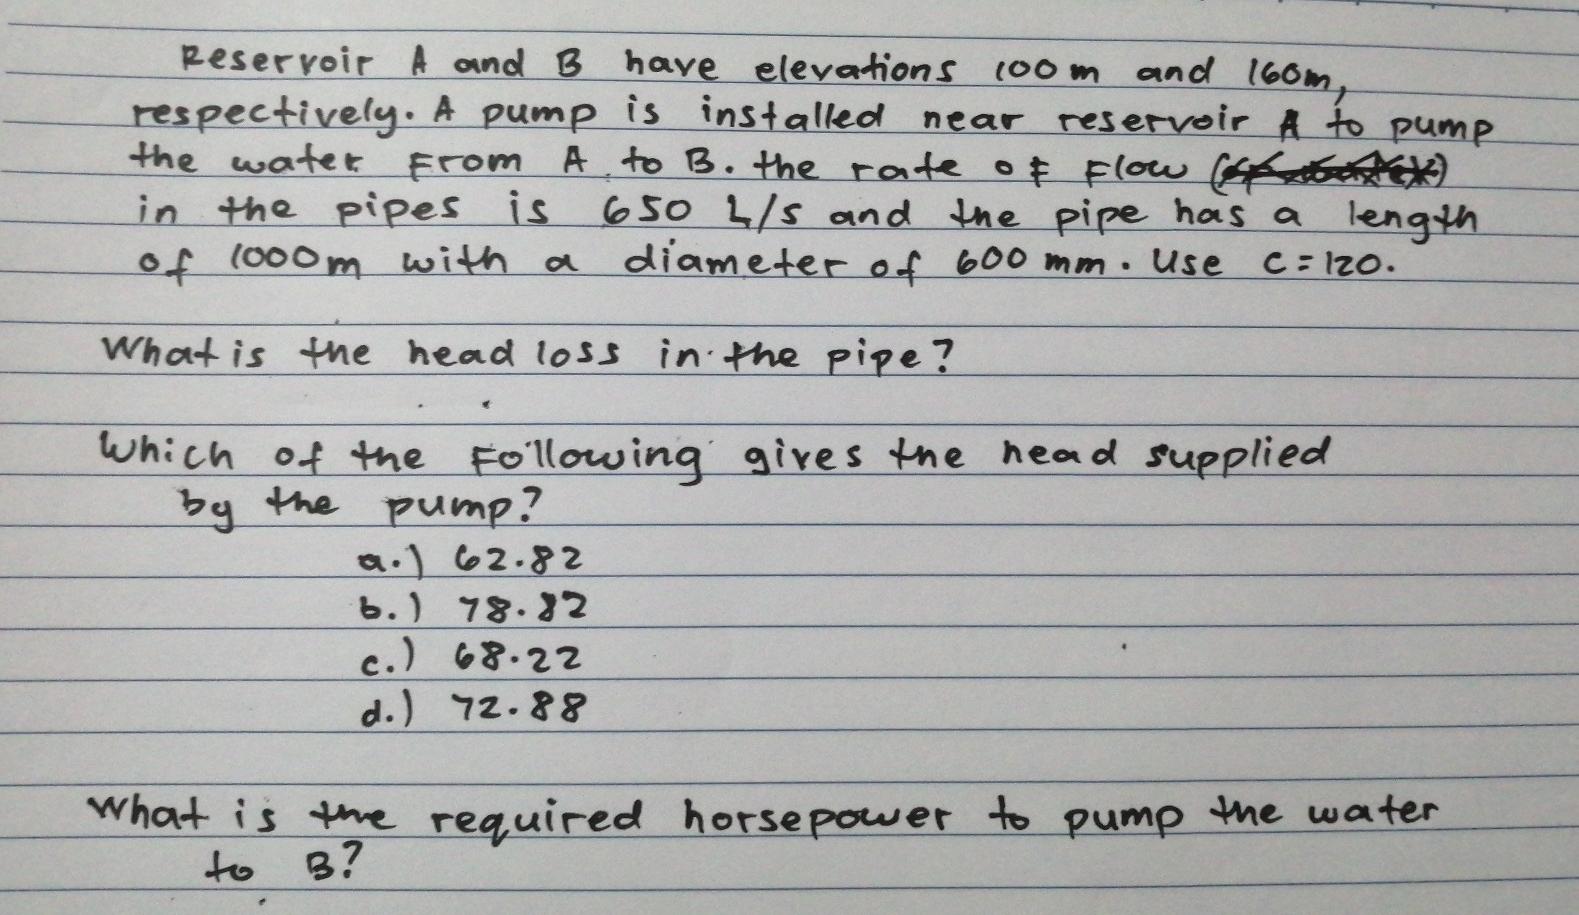 Reservoir A and B have elevations 100m and 160m,
respectively. A pump is installed near reservoir A to pump
the water from A to B. the rate of flow
in the pipes is 650 L/s and the pipe has a length
of 1000m with a diameter of 600 mm. Use C=120.
What is the head loss in the pipe?
Which of the following gives the head supplied
by the pump?
a.) 62.82
b.) 78.82
c.) 68.22
d.) 72.88
What is the required horsepower to pump the water
to B?